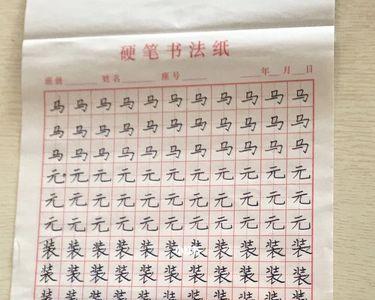 硬笔书法纸
班级 姓名 座号 年 月 日
马马马马马马马马马马马
马马马马马马马马马马马
马马马马马马马马马马马
元元元元元元元元元元元
元元元元元元元元元元元
元元元元元元元元元元元
装装装装装装装装装装装
装装装装装装装装装装装
装装装装装装装装装装装